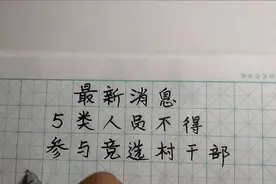 最新消息
5类人员不得
参与竞选村干部